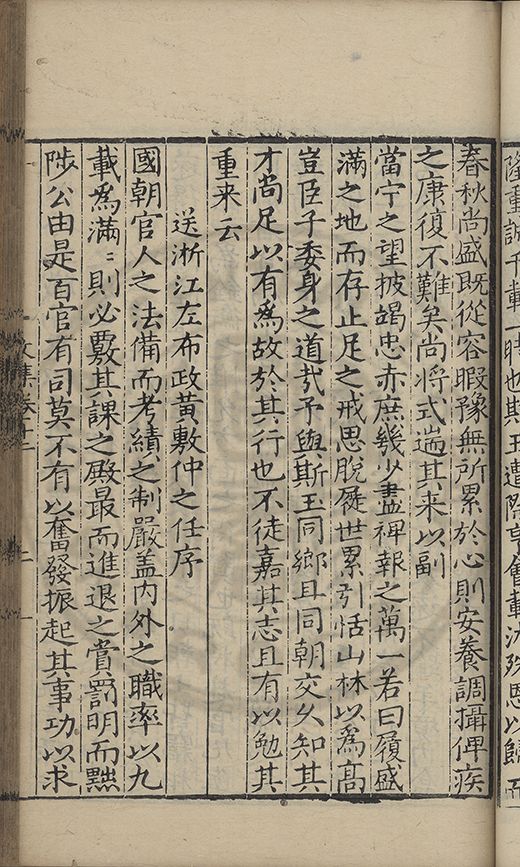 隆重誠千載一時也其玉遭際亨會載沐殊恩以歸
春秋尚盛既從容暇豫無所累於心則安養調攝俾疾
之康復不難矣尚將式遄其来以副
當宁之望披竭忠赤庶幾少盡禆報之萬一若曰履盛
滿之地而存止足之戒思脫屣世累引恬山林以為髙
豈臣子委身之道㢤予與斯玉同鄉且同朝交久知其
才尚足以有為故於其行也不徒嘉其志且有以勉其
重来云
送浙江左布政黃敷仲之任序
國朝官人之法備而考績之制嚴盖内外之職率以九
載為滿〻則必覈其課之殿最而進退之賞罰明而黜
陟公由是百官有司莫不有以奮發振起其事功以求
文集卷十二